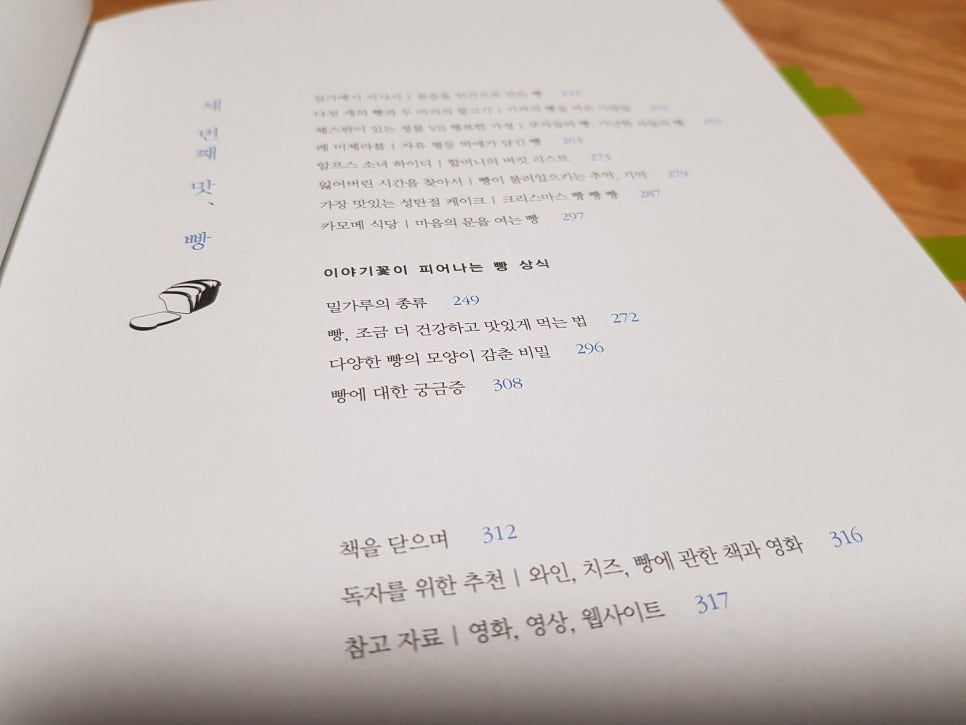 세 번째 맛, 빵
다섯 개의 빵과 두 마리의 물고기 |
체스판이 있는 정물 VS 행복한 가정 | 부자들의 빵, 가난한 자들의 빵
레 미제라블 | 자유 평등 박애가 담긴 빵 263
알프스 소녀 하이디 | 할머니의 버킷 리스트 273
잃어버린 시간을 찾아서 | 빵이 불러일으키는 추억, 기억 279
가장 맛있는 성탄절 케이크 | 크리스마스 빵 빵 빵 287
카모메 식당 | 마음의 문을 여는 빵 297
이야기꽃이 피어나는 빵 상식
밀가루의 종류 249
빵, 조금 더 건강하고 맛있게 먹는 법 272
다양한 빵의 모양이 감춘 비밀 296
빵에 대한 궁금증 308
책을 닫으며 312
독자를 위한 추천 | 와인, 치즈, 빵에 관한 책과 영화 316
참고 자료 | 영화, 영상, 웹사이트 317